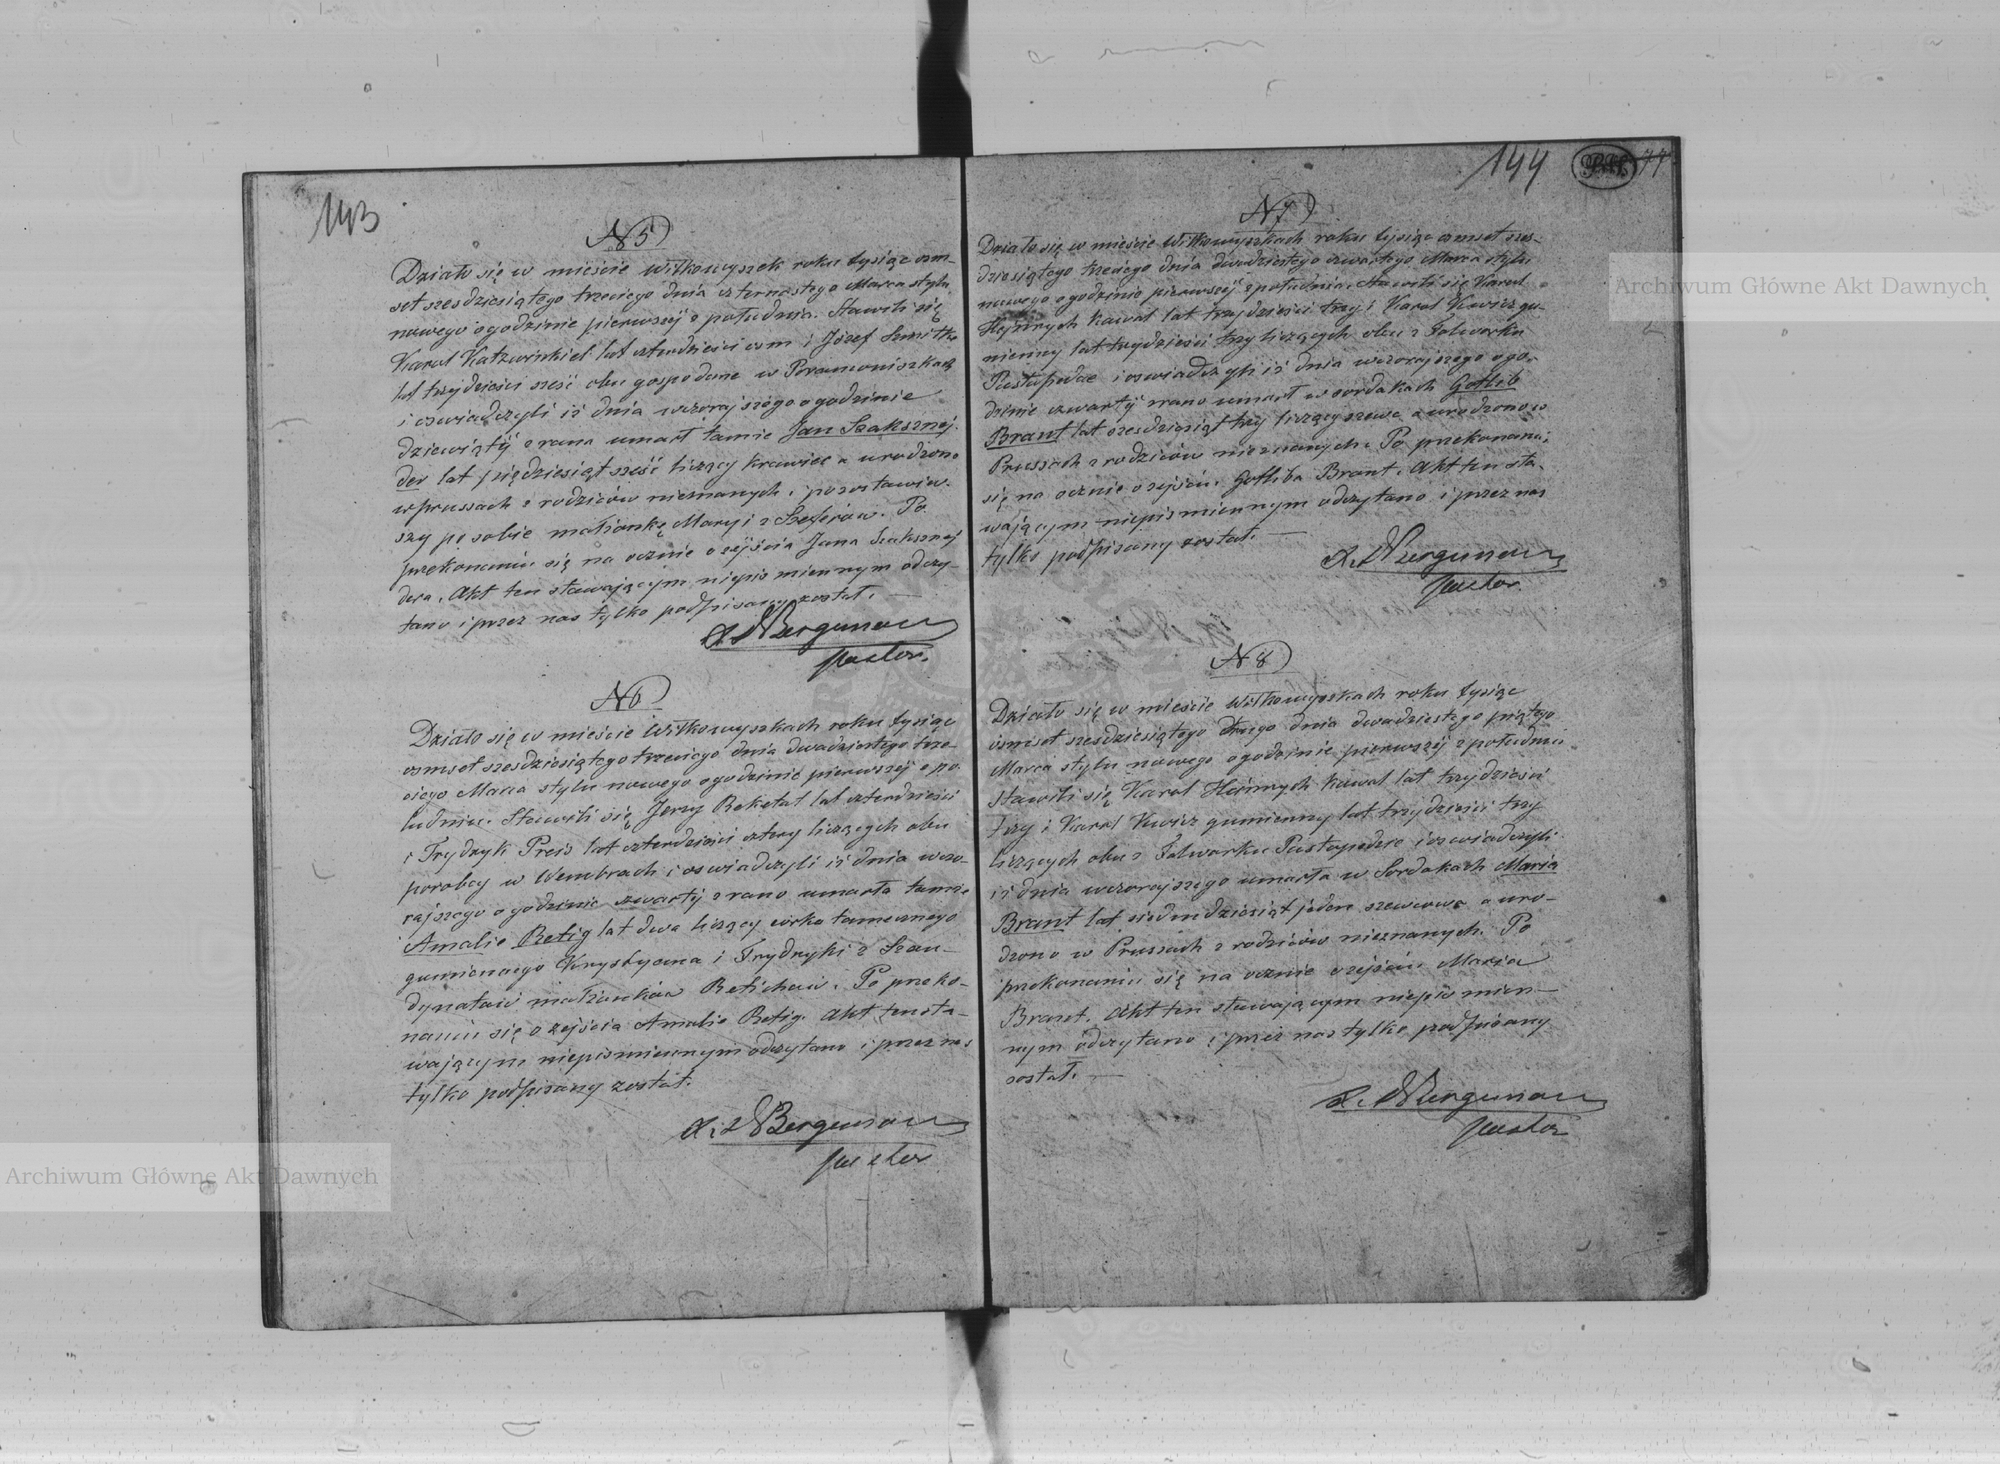 143
N 5
Działo się w mieście Wiłkowyszek roku tysiąc ośm-
set szesdziesiątego trzeciego dnia czternastego Marca stylu
nowego o godzinie pierwszéj z południa. Stawili się
Karol Katzwinkiel lat czterdzieści ośm i Józef Szmitke
lat trzydzieści sześć obu gospodarze w Poramoniszkach
i oswiadczyli iż dnia wczorajszego o godzinie
dziewiątéj z rana umarł tamie Jan Szaksznej-
der lat pięcdziesiąt sześć liczący krawiec a urodzony
w prussach z rodziców nieznanych, i pozostawiw-
szy po sobie małżonkę Maryi z Szeferów. Po
przekonaniu się na ocznie o zejścia Jana Szaksznej
dera. Akt ten stawającym niepismiennym odczy-
tano i przez nas tylko podpisany został. —
A. W Bergmann
pastor.
N 6
Działo się w mieście Wiłkowyszkach roku tysiąc
osmset szesdziesiątego trzeciego dnia dwadziestego trze-
ciego Marca stylu nowego o godzinie pierwszéj z po-
łudniu. Stawili się Jerzy Reketat lat czterdzieści
i Frydryk Preis lat czterdzieści cztery liczących obu
porobcy w Wembrach i oswiadczyli iż dnia wczo-
rajszego o godzinie czwartéj z rano umarła tamie
Amalie Retig lat dwa liczący córka tamecznego
gumiennego Krystyana i Frydryki z Szau-
dynatów małżonków Retichow. Po przeko-
naniu się o zejścia Amalie Retig. Akt ten sta-
wającym niepismiennym odczytano i przez nas
tylko podpisany został.
A. W Bergmann
pastor
144
77
N 7
Działo się w mieście Wiłkowyszkach roku tysiąc osmset szes-
dziesiątego trzeciego dnia dwudziestego czwartego Marca stylu
nowego o godzinie pierwszéj z południa. Stawili się Karol
Hejnrych Kawal lat trzydzieści trzy i Karol Kewicz gu-
mienny lat trzydzieści trzy liczących obu z Folwarku
Pustapedze i oswiadczyli iż dnia wczorajszego o go-
dzinie czwartéj rano umarł w Sordakach Gotlib
Brant lat szesdziesiąt trzy liczący szewc a urodzono w
Prussach z rodziców nieznanych. Po przekonaniu
się na ocznie o zejściu. Gotliba Brant. Akt ten sta-
wającym niepismiennym odczytano i przez nas
tylko podpisany został. —
A. W Bergmann
pastor.
N 8
Działo się w mieście Wiłkowyszkach roku tysiąc
ósmset szesdziesiątego drugo dnia dwadziestego piątego
Marca stylu nowego o godzinie pierwszéj z południu
stawili się Karol Heinrych Kawal lat trzydzieści
trzy i Karol Kewicz gumienny lat trzydzieści trzy
liczących obu z Folwarku Pustapedzie i oswiadczyli
iż dnia wczorajszego umarła w Sordakach Maria
Brant lat siedmdziesiąt jeden szewcowa a uro-
dzono w Prussach z rodziców nieznanych. Po
przekonaniu się na ocznie zejściu Maria
Brant. Akt ten stawającym niepiśmien-
nym odczytano i przez nas tylko podpisany
został. —
A. W Bergmann
pastor
Archiwum Główne Akt Dawnych
Archiwum Główne Akt Dawnych